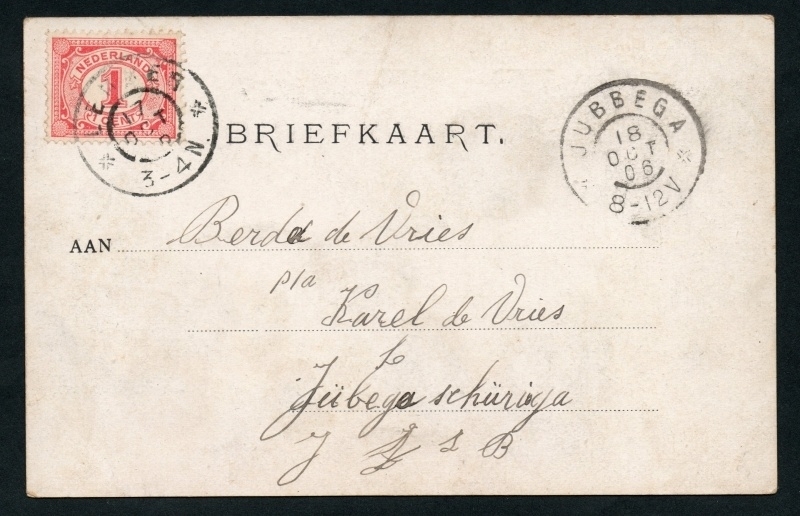 NEDERLAND
1
CENT
17
OCT
3-4N
BRIEFKAART.
JUBBEGA
18
OCT
06
8-12V
AAN Berda de Vries
p/a
Karel de Vries
Jübega schüriga